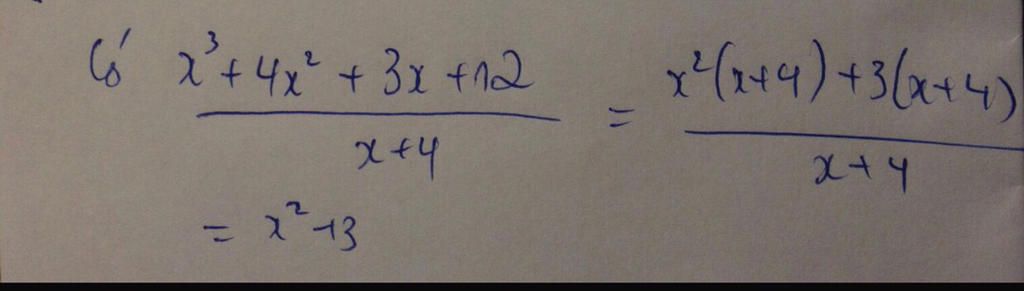 Có (x³ + 4x² + 3x + 12)/(x + 4) = (x²(x+4) + 3(x+4))/(x + 4)
= x² + 3